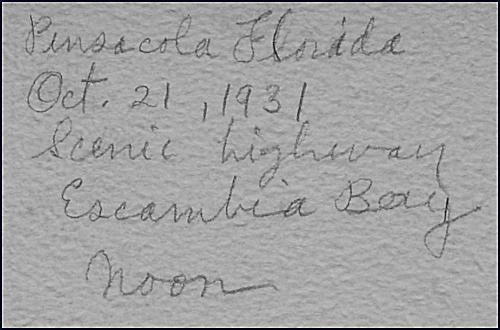 Pensacola Florida
Oct. 21, 1931
Scenic highway
Escambia Bay
Noon